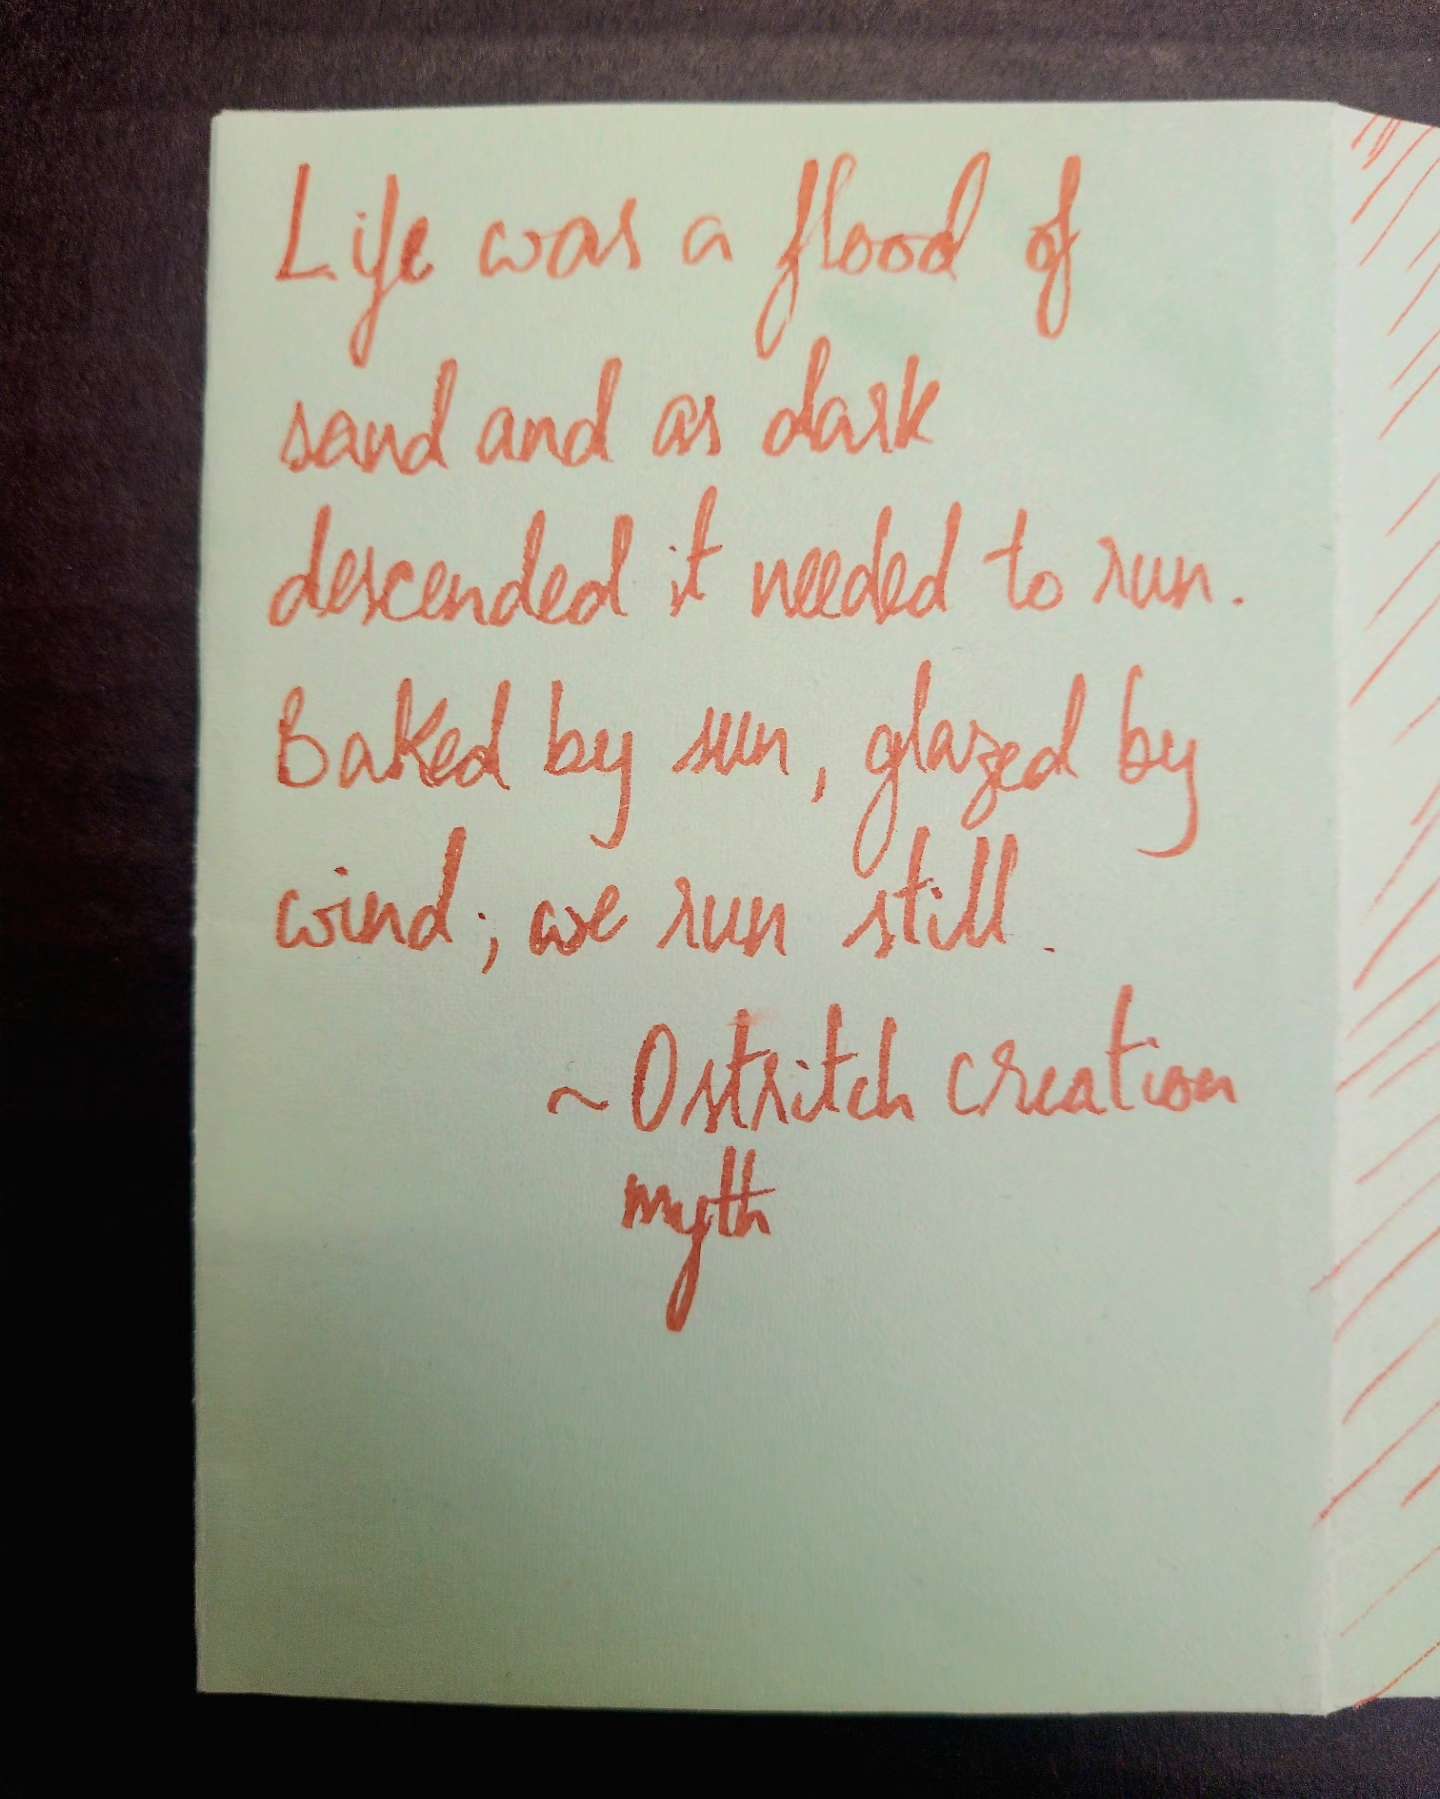 Life was a flood of
sand and as dark
descended it needed to run.
Baked by sun, glazed by
wind; we run still.
~Ostritch creation
myth